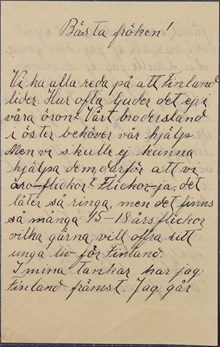 Bästa fröken!
Vi ha alla reda på att Finland
lider. Hur ofta ljuder det ej i
våra öron! Vårt brodersland
i öster behöver vår hjälp.
Men vi skulle ej kunna
hjälpa dem därför att vi
äro flickor? Flickor ja, det
låter så ringa, men det finns
så många 15-18 års flickor
vilka gärna vill offra sitt
unga liv för Finland.
I mina tankar har jag
Finland främst. Jag går